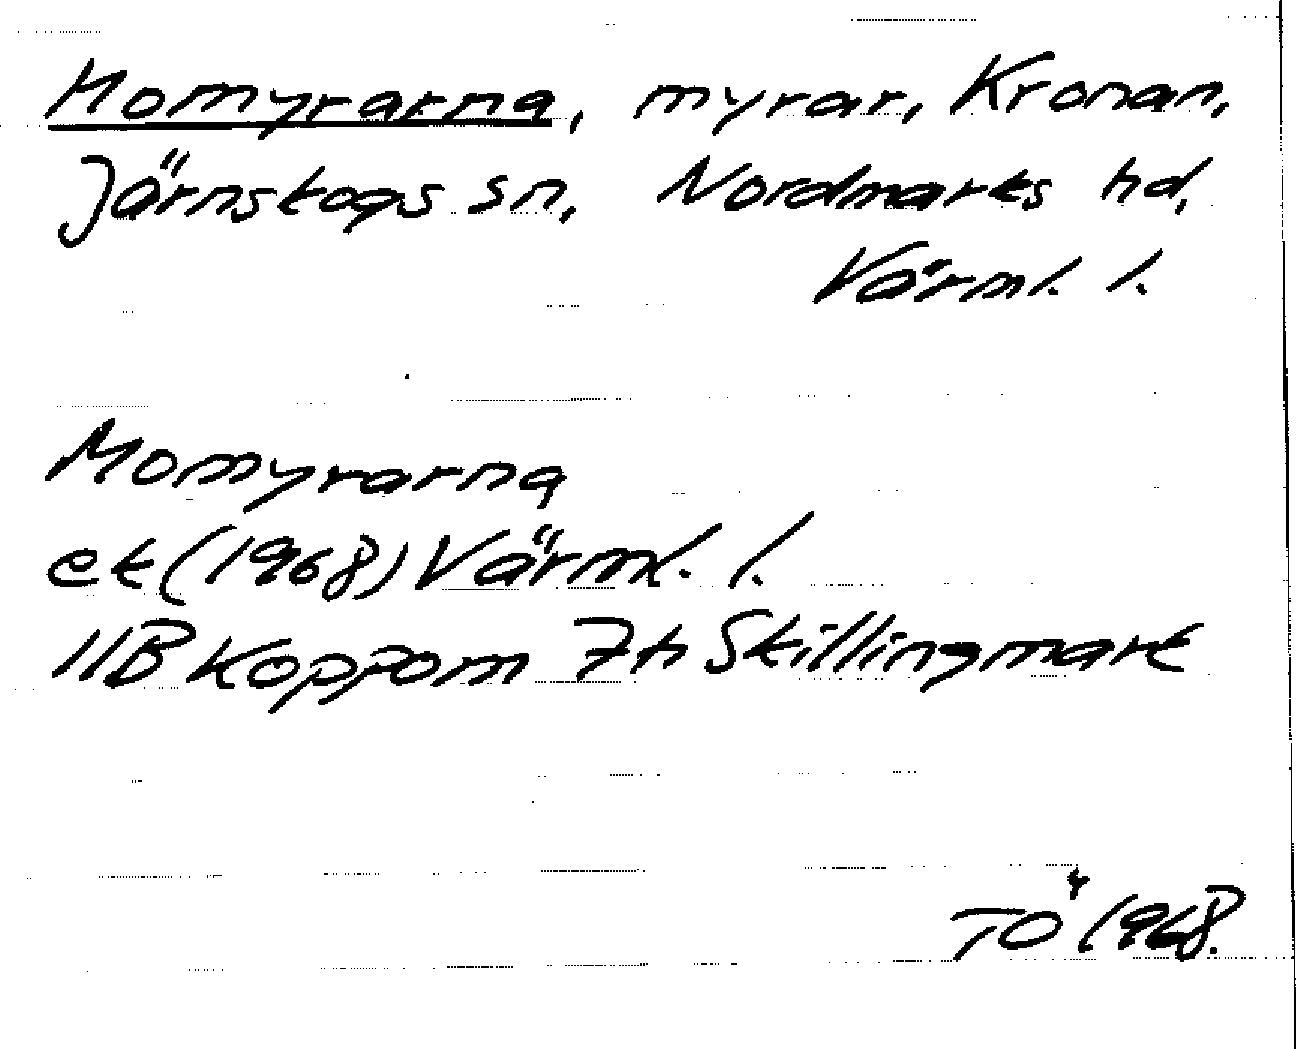 Momyrarna, myrar, Kronan,
Järnskogs sn, Nordmarks hd,
Värml. l.
Momyrarna
ek (1968) Värml. l.
11B Koppom 7h Skillingmark
TÖ 1968.